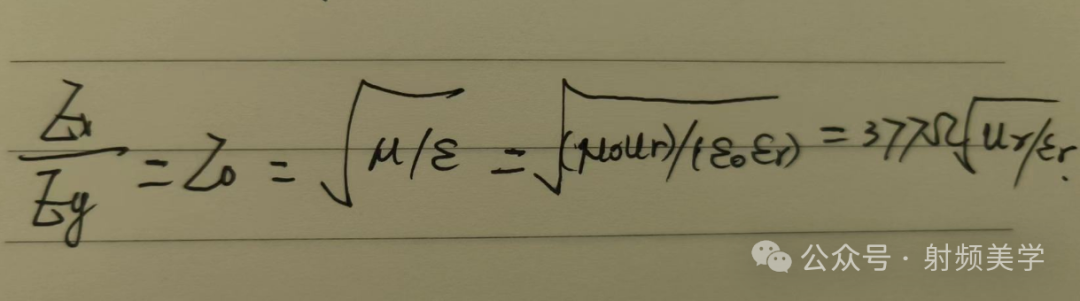 Zx/Zy = Z₀ = √(μ/ε) = √((μ₀μr)/(ε₀εr)) = 377Ω√(μr/εr).
公众号 · 射频美学